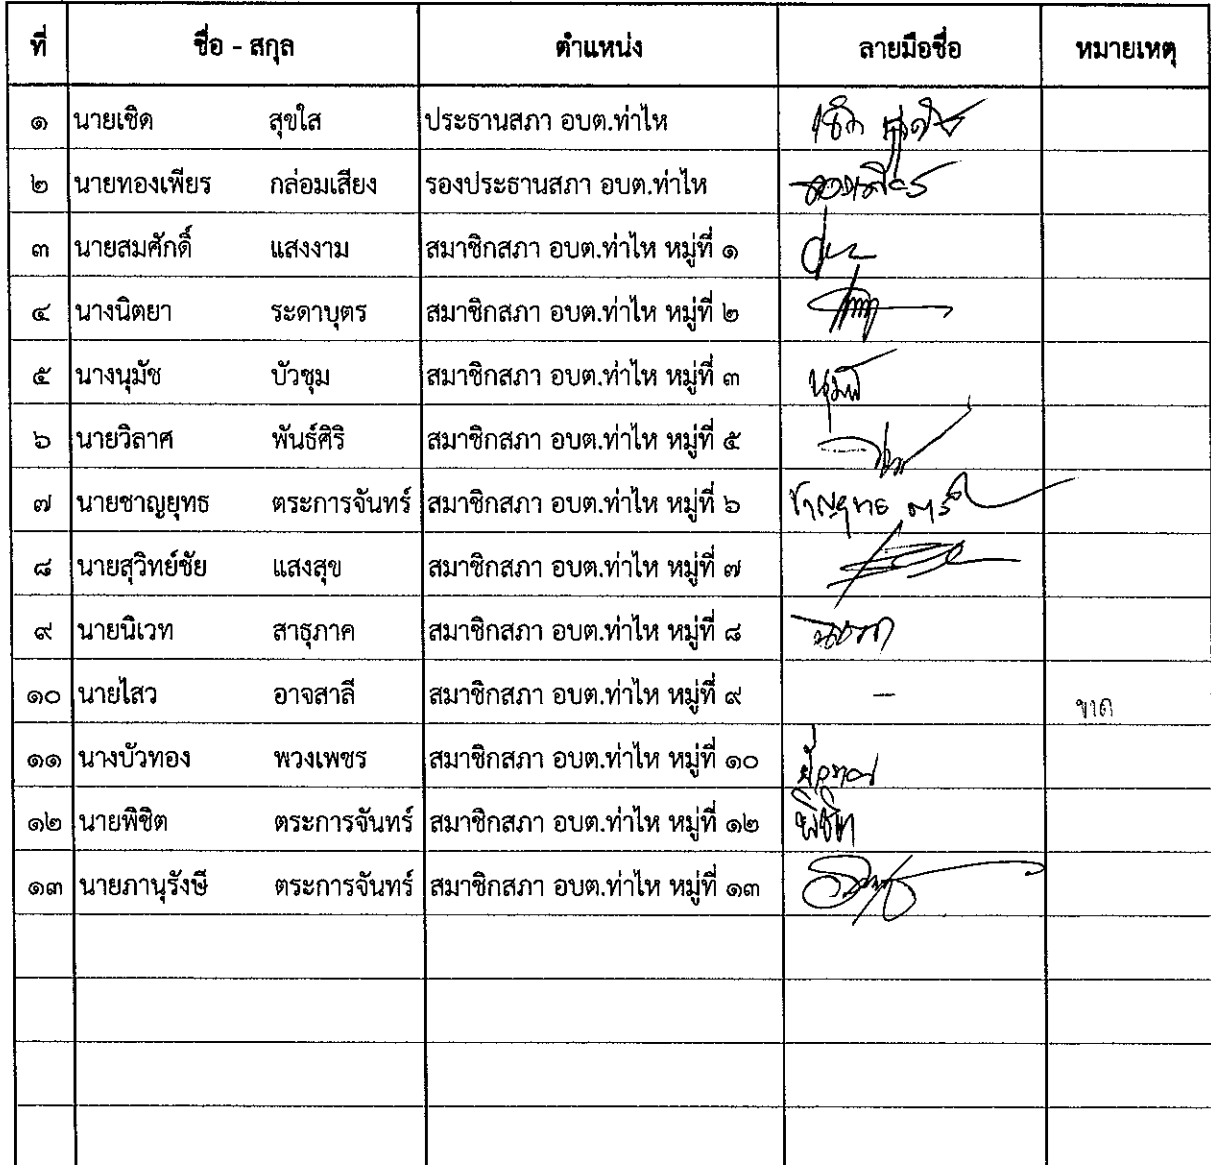 ที่ ชื่อ - สกุล ตำแหน่ง ลายมือชื่อ หมายเหตุ
๑ นายเชิด สุขใส ประธานสภา อบต.ท่าไห เชิด สุขใส
๒ นายทองเพียร กล่อมเสียง รองประธานสภา อบต.ท่าไห ทองเพียร
๓ นายสมศักดิ์ แสงงาม สมาชิกสภา อบต.ท่าไห หมู่ที่ ๑
๔ นางนิตยา ระดาบุตร สมาชิกสภา อบต.ท่าไห หมู่ที่ ๒
๕ นางนุมัช บัวชุม สมาชิกสภา อบต.ท่าไห หมู่ที่ ๓
๖ นายวิลาศ พันธ์ศิริ สมาชิกสภา อบต.ท่าไห หมู่ที่ ๕
๗ นายชาญยุทธ ตระการจันทร์ สมาชิกสภา อบต.ท่าไห หมู่ที่ ๖ ชาญยุทธ
๘ นายสุวิทย์ชัย แสงสุข สมาชิกสภา อบต.ท่าไห หมู่ที่ ๗
๙ นายนิเวท สาธุภาค สมาชิกสภา อบต.ท่าไห หมู่ที่ ๘
๑๐ นายไสว อาจสาลี สมาชิกสภา อบต.ท่าไห หมู่ที่ ๙ - ขาด
๑๑ นางบัวทอง พวงเพชร สมาชิกสภา อบต.ท่าไห หมู่ที่ ๑๐
๑๒ นายพิชิต ตระการจันทร์ สมาชิกสภา อบต.ท่าไห หมู่ที่ ๑๒ พิชิต
๑๓ นายภานุรังษี ตระการจันทร์ สมาชิกสภา อบต.ท่าไห หมู่ที่ ๑๓